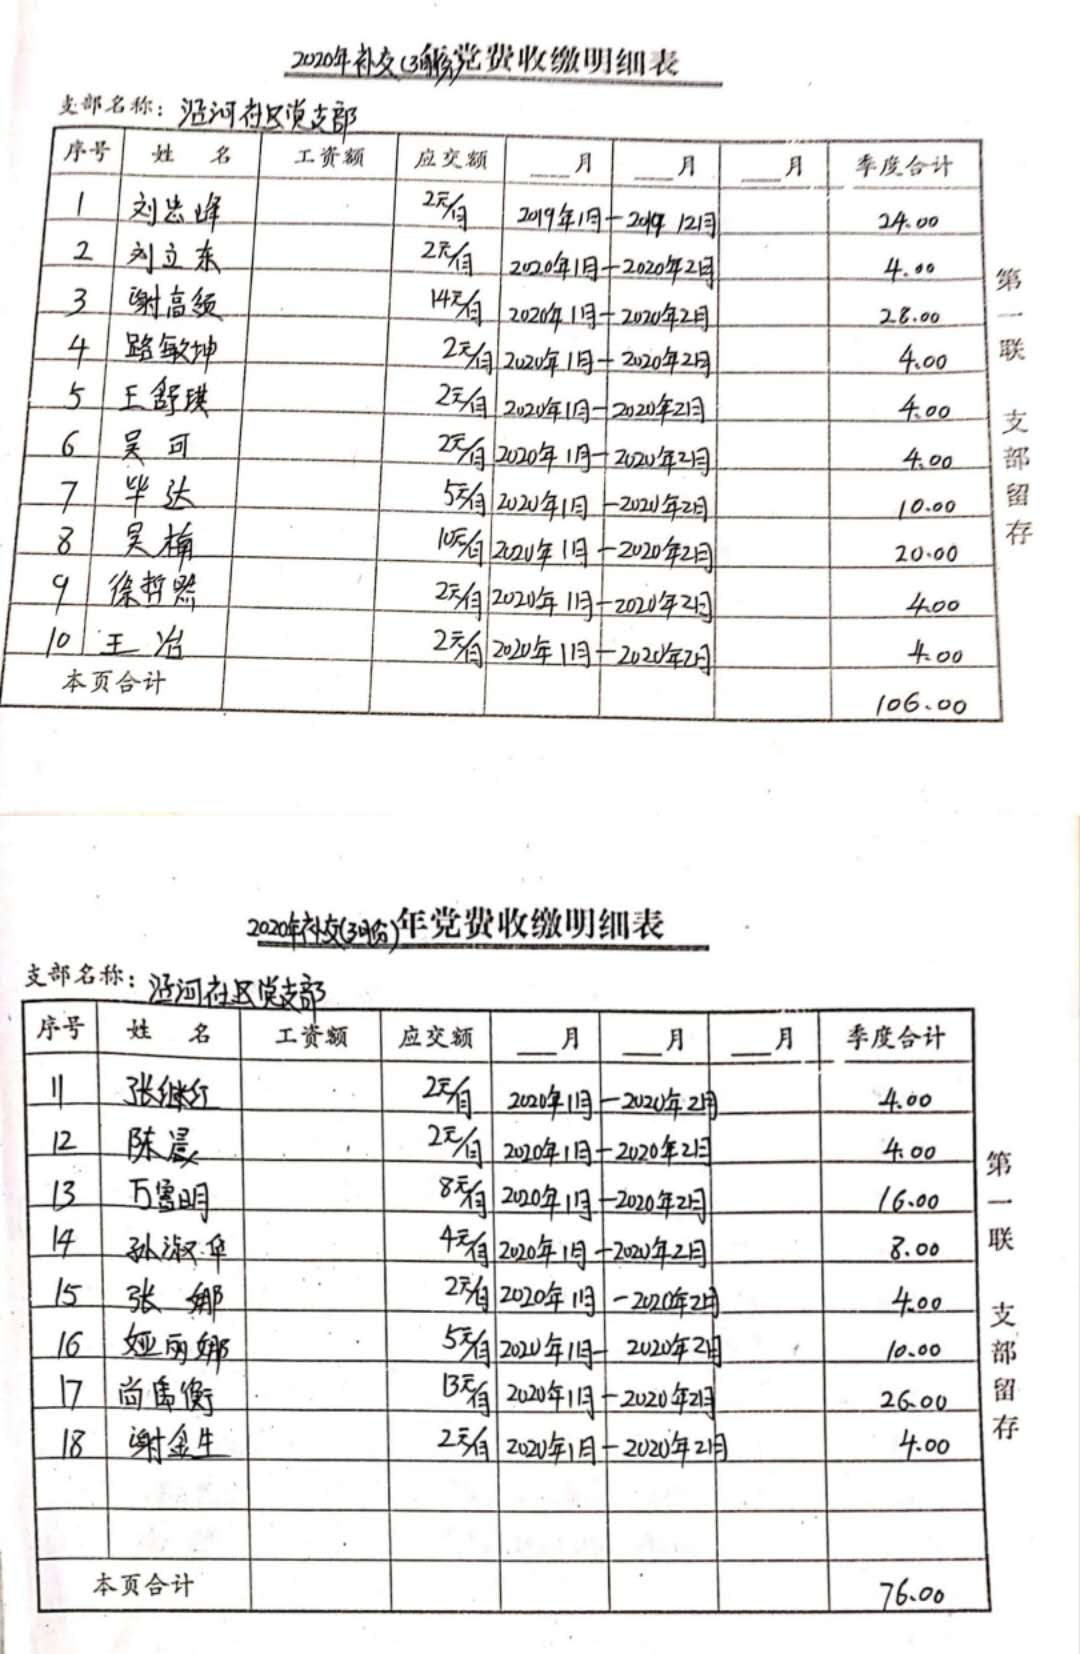 2020年补交(3月份)年党费收缴明细表
支部名称: 沿河社区党支部
序号 姓 名 工资额 应交额 ___月 ___月 ___月 季度合计
1 刘忠峰 2元/月 2019年1月-2019年12月 24.00
2 刘立东 2元/月 2020年1月-2020年2月 4.00
3 谢高颂 14元/月 2020年1月-2020年2月 28.00
4 路敏坤 2元/月 2020年1月-2020年2月 4.00
5 王舒琪 2元/月 2020年1月-2020年2月 4.00
6 吴可 2元/月 2020年1月-2020年2月 4.00
7 毕达 5元/月 2020年1月-2020年2月 10.00
8 吴楠 10元/月 2020年1月-2020年2月 20.00
9 徐哲 2元/月 2020年1月-2020年2月 4.00
10 王冶 2元/月 2020年1月-2020年2月 4.00
本页合计 106.00
第一联 支部留存
2020年补交(3月份)年党费收缴明细表
支部名称: 沿河社区党支部
序号 姓 名 工资额 应交额 ___月 ___月 ___月 季度合计
11 张继红 2元/月 2020年1月-2020年2月 4.00
12 陈晨 2元/月 2020年1月-2020年2月 4.00
13 万雪明 8元/月 2020年1月-2020年2月 16.00
14 孙淑华 4元/月 2020年1月-2020年2月 8.00
15 张娜 2元/月 2020年1月-2020年2月 4.00
16 娅丽娜 5元/月 2020年1月-2020年2月 10.00
17 尚禹衡 13元/月 2020年1月-2020年2月 26.00
18 谢金生 2元/月 2020年1月-2020年2月 4.00
本页合计 76.00
第一联 支部留存